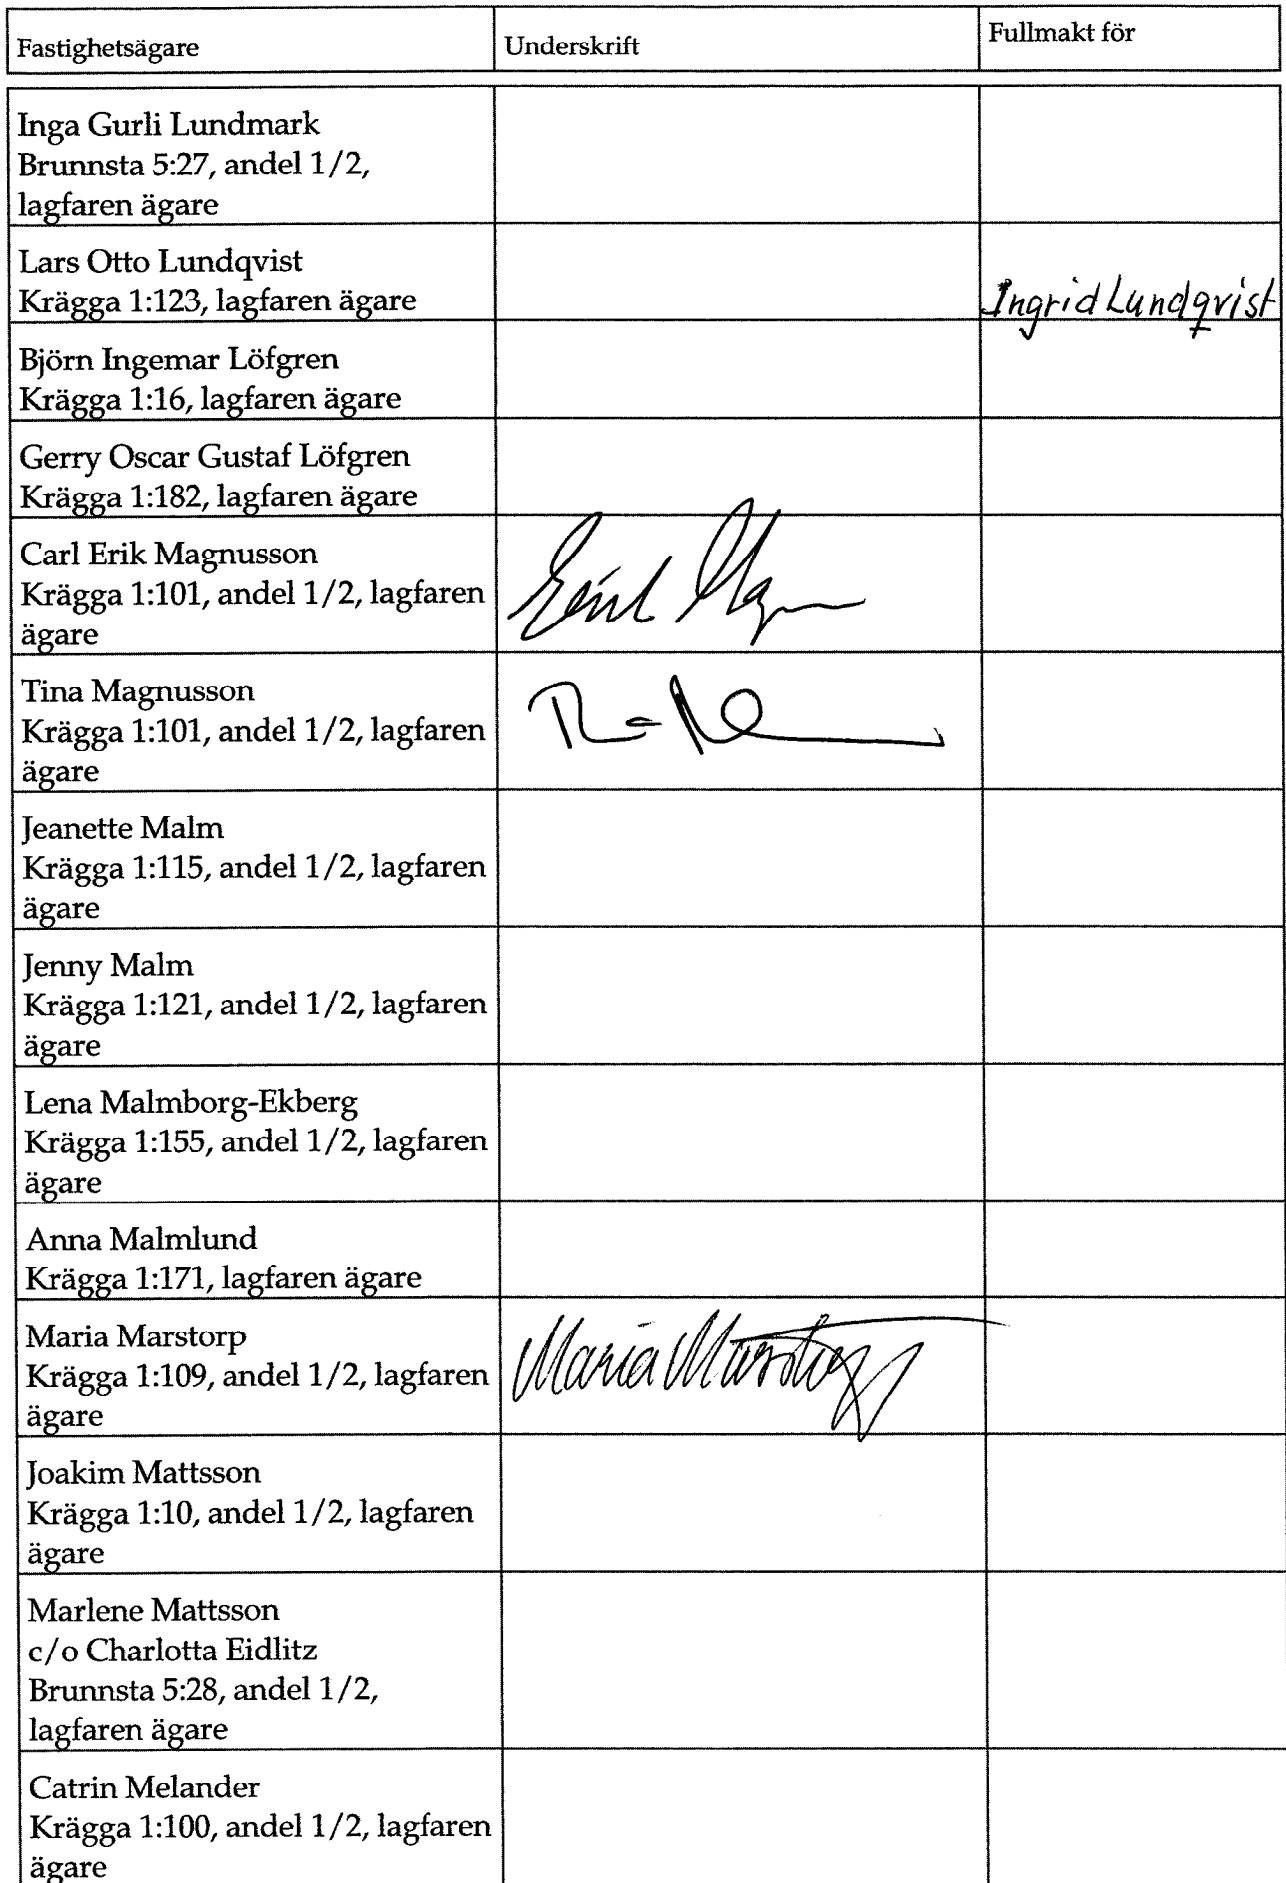 Fastighetsägare
Underskrift
Fullmakt för
Inga Gurli Lundmark
Brunnsta 5:27, andel 1/2,
lagfaren ägare
Lars Otto Lundqvist
Krägga 1:123, lagfaren ägare
Ingrid Lundqvist
Björn Ingemar Löfgren
Krägga 1:16, lagfaren ägare
Gerry Oscar Gustaf Löfgren
Krägga 1:182, lagfaren ägare
Carl Erik Magnusson
Krägga 1:101, andel 1/2, lagfaren
ägare
Tina Magnusson
Krägga 1:101, andel 1/2, lagfaren
ägare
Jeanette Malm
Krägga 1:115, andel 1/2, lagfaren
ägare
Jenny Malm
Krägga 1:121, andel 1/2, lagfaren
ägare
Lena Malmborg-Ekberg
Krägga 1:155, andel 1/2, lagfaren
ägare
Anna Malmlund
Krägga 1:171, lagfaren ägare
Maria Marstorp
Krägga 1:109, andel 1/2, lagfaren
ägare
Maria Marstorp
Joakim Mattsson
Krägga 1:10, andel 1/2, lagfaren
ägare
Marlene Mattsson
c/o Charlotta Eidlitz
Brunnsta 5:28, andel 1/2,
lagfaren ägare
Catrin Melander
Krägga 1:100, andel 1/2, lagfaren
ägare